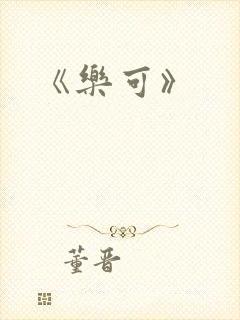 《樂可》
董晋